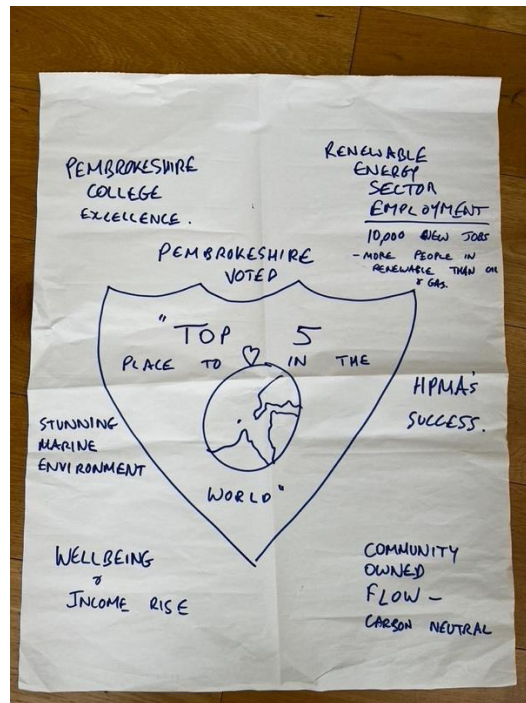 PEMBROKESHIRE
COLLEGE
EXCELLENCE.
RENEWABLE
ENERGY
SECTOR
EMPLOYMENT
10,000 NEW JOBS
- MORE PEOPLE IN
RENEWABLE THAN OIL
& GAS.
PEMBROKESHIRE
VOTED
"TOP 5
PLACE TO ♡ IN THE
WORLD"
STUNNING
MARINE
ENVIRONMENT
HPMA's
SUCCESS.
WELLBEING
&
INCOME RISE
COMMUNITY
OWNED
FLOW -
CARBON NEUTRAL